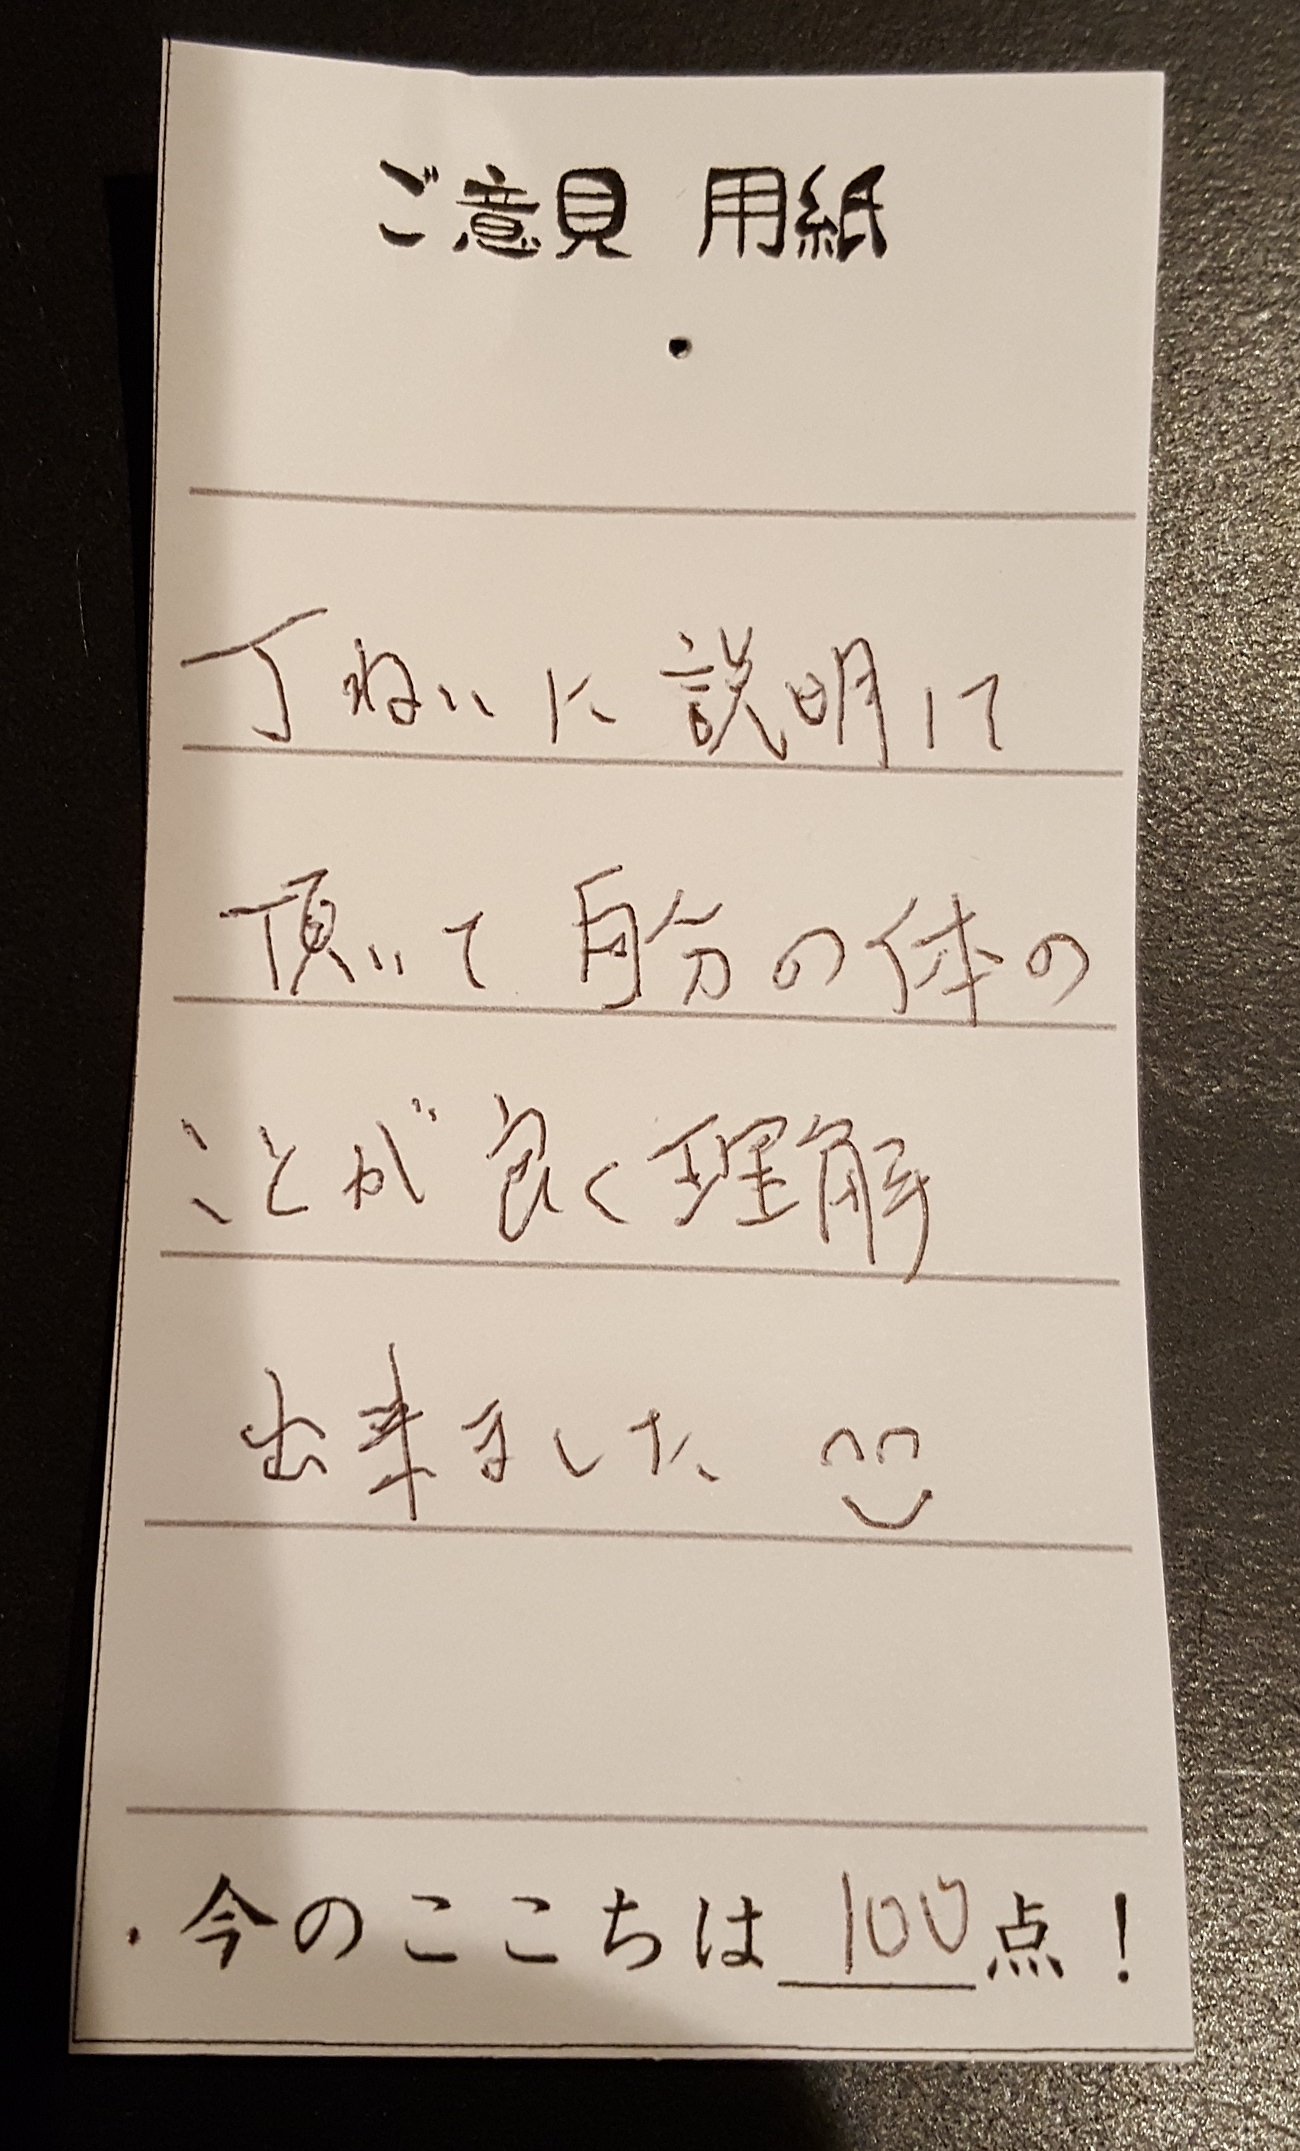 ご意見 用紙
丁ねいに説明して
頂いて自分の体の
ことが良く理解
出来ました
・今のここちは 100 点！